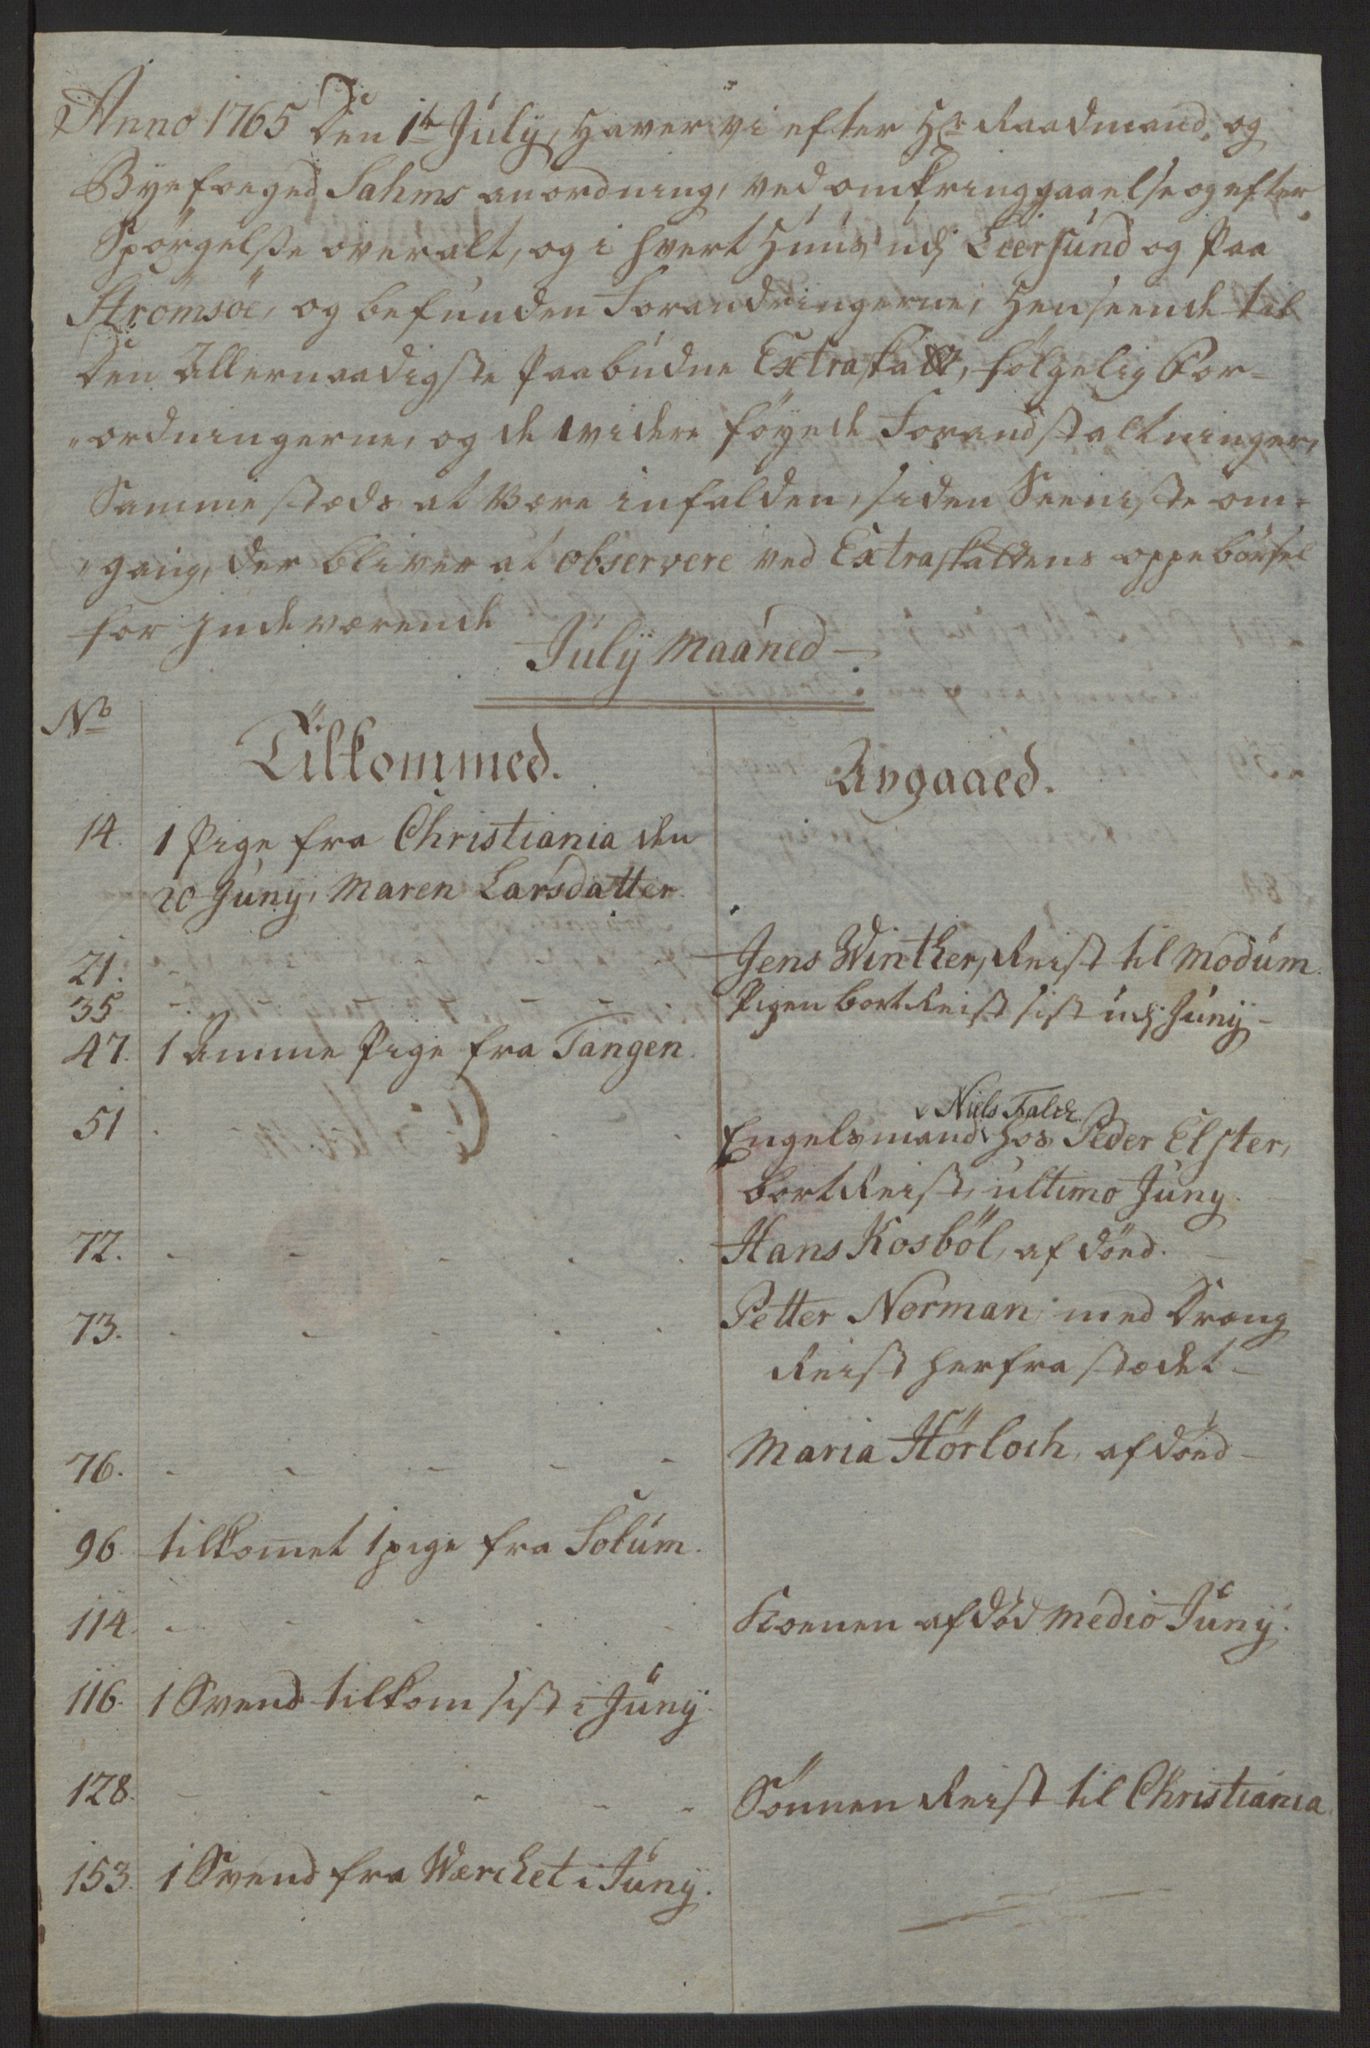 Anno 1765 Den 1te July, Haver vi efter Hr. Raadmand, og
Byefoeged Sahms anordning, ved omkringgaaelse og efter
Spörgelse overalt, og i hvert Huus udj Leirsund og Paa
Stromsöe, og befunden Forandringerne, Henseende til
Den Allernaadigste Paabudne Extraskatt, fölgelig For-
ordningerne, og de videre föyede Foranstaltninger,
Sammestæds at være infalden, siden Seeniste om-
gang, der bliver at observere ved Extraskattens oppebörsel
for Indeværende
July Maaned
No
Tilkommed.
Avgaaed.
14. 1 Pige fra Christiania den
20 Juny, Maren Larsdatter.
21. Jens Winther, Reist til Modum.
35 Pigen bortReist sist udj Juny
47. 1 Amme Pige fra Tangen.
Niels Falck
51 Engelsmand hos Peder Elster,
bortReist, ultimo Juny.
72. Hans Kosböl, af död.
73. Petter Norman, med Dreng
Reist herfra stædet
76. Maria Hörloch, af död
96. tilkomet 1 pige fra Solum.
114. Konen afdöd medio Juny.
116. 1 Svend tilkom sist i Juny
128. Sönnen Reist til Christiania.
153. 1 Svend fra Værcket i Juny.